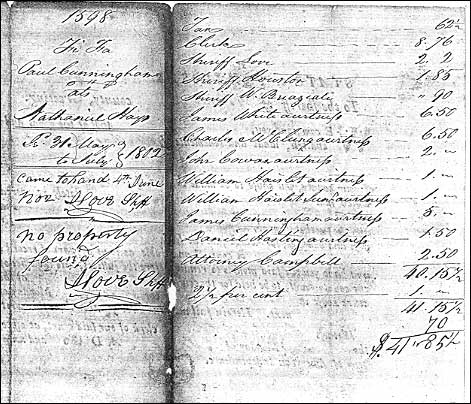 1598
Fi Fa
Paul Cunningham
ats
Nathaniel Hays
Rt. 31 May
to July 1802
came to hand 4th June
1802 Love Shff
no property
found
Love Shff
Tax 62½
Clerk 8.76
Sheriff Love 2.2
Sheriff Houston 1.85
Sheriff W. 90
James White a witness 6.50
Charles McClung a witness 6.50
John Cowan a witness 2.
William Haislet a witness 1.
William Haislet Senr a witness 1.
James Cunningham a witness 5.
Daniel a witness 1.50
Attorney Campbell 2.50
40.15½
2½ per cent 1.
41.15½
70
$.41"85½